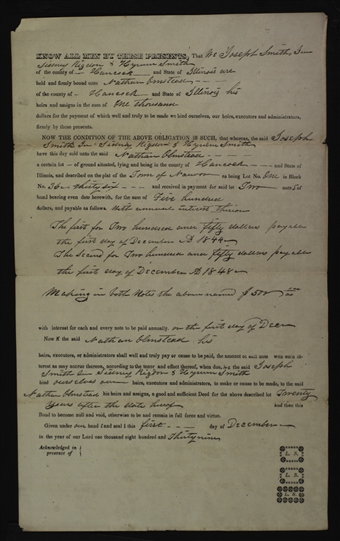 KNOW ALL MEN BY THESE PRESENTS, That We Joseph Smith Jr
Sidney Rigdon & Hyrum Smith
of the county of Hancock and State of Illinois are
held and firmly bound unto Nathan Olmstead
of the county of Hancock and State of Illinois his
heirs and assigns in the sum of One thousand
dollars for the payment of which well and truly to be made we bind ourselves, our heirs, executors and administrators,
firmly by these presents.
NOW THE CONDITION OF THE ABOVE OBLIGATION IS SUCH, that whereas, the said Joseph
Smith Jr Sidney Rigdon & Hyrum Smith
have this day sold unto the said Nathan Olmstead
a certain lot of ground situated, lying and being in the county of Hancock and State of
Illinois, and described on the plat of the Town of Nauvoo as being Lot No. One in Block
No. 36 thirty six and received in payment for said lot Two notes of
hand bearing even date herewith, for the sum of Five hundred
dollars, and payable as follows With annual interest thereon
The first for Two hundred and fifty dollars payable
the first day of December AD 1844
The Second for Two hundred and fifty dollars payable
the first day of December AD 1848
Making in both notes the above named $500
with interest for each and every note to be paid annually. on the first day of Dec
Now if the said Nathan Olmstead his
heirs, executors, or administrators shall well and truly pay or cause to be paid, the
terest as may accrue thereon, according to the tenor and effect thereof, when due, the said Joseph
Smith Jr Sidney Rigdon & Hyrum Smith
bind ourselves our heirs, executors and administrators, to make or cause to be made, to the said
Nathan Olmstead his heirs and assigns, a good and sufficient Deed for the above described lot Twenty
years after the date hereof And then this
Bond to become null and void, otherwise to be and remain in full force and virtue.
Given under our hand and seal this first day of December
in the year of our Lord one thousand eight hundred and Thirty nine
Acknowledged in
presence of
L. S.
L. S.
L. S.